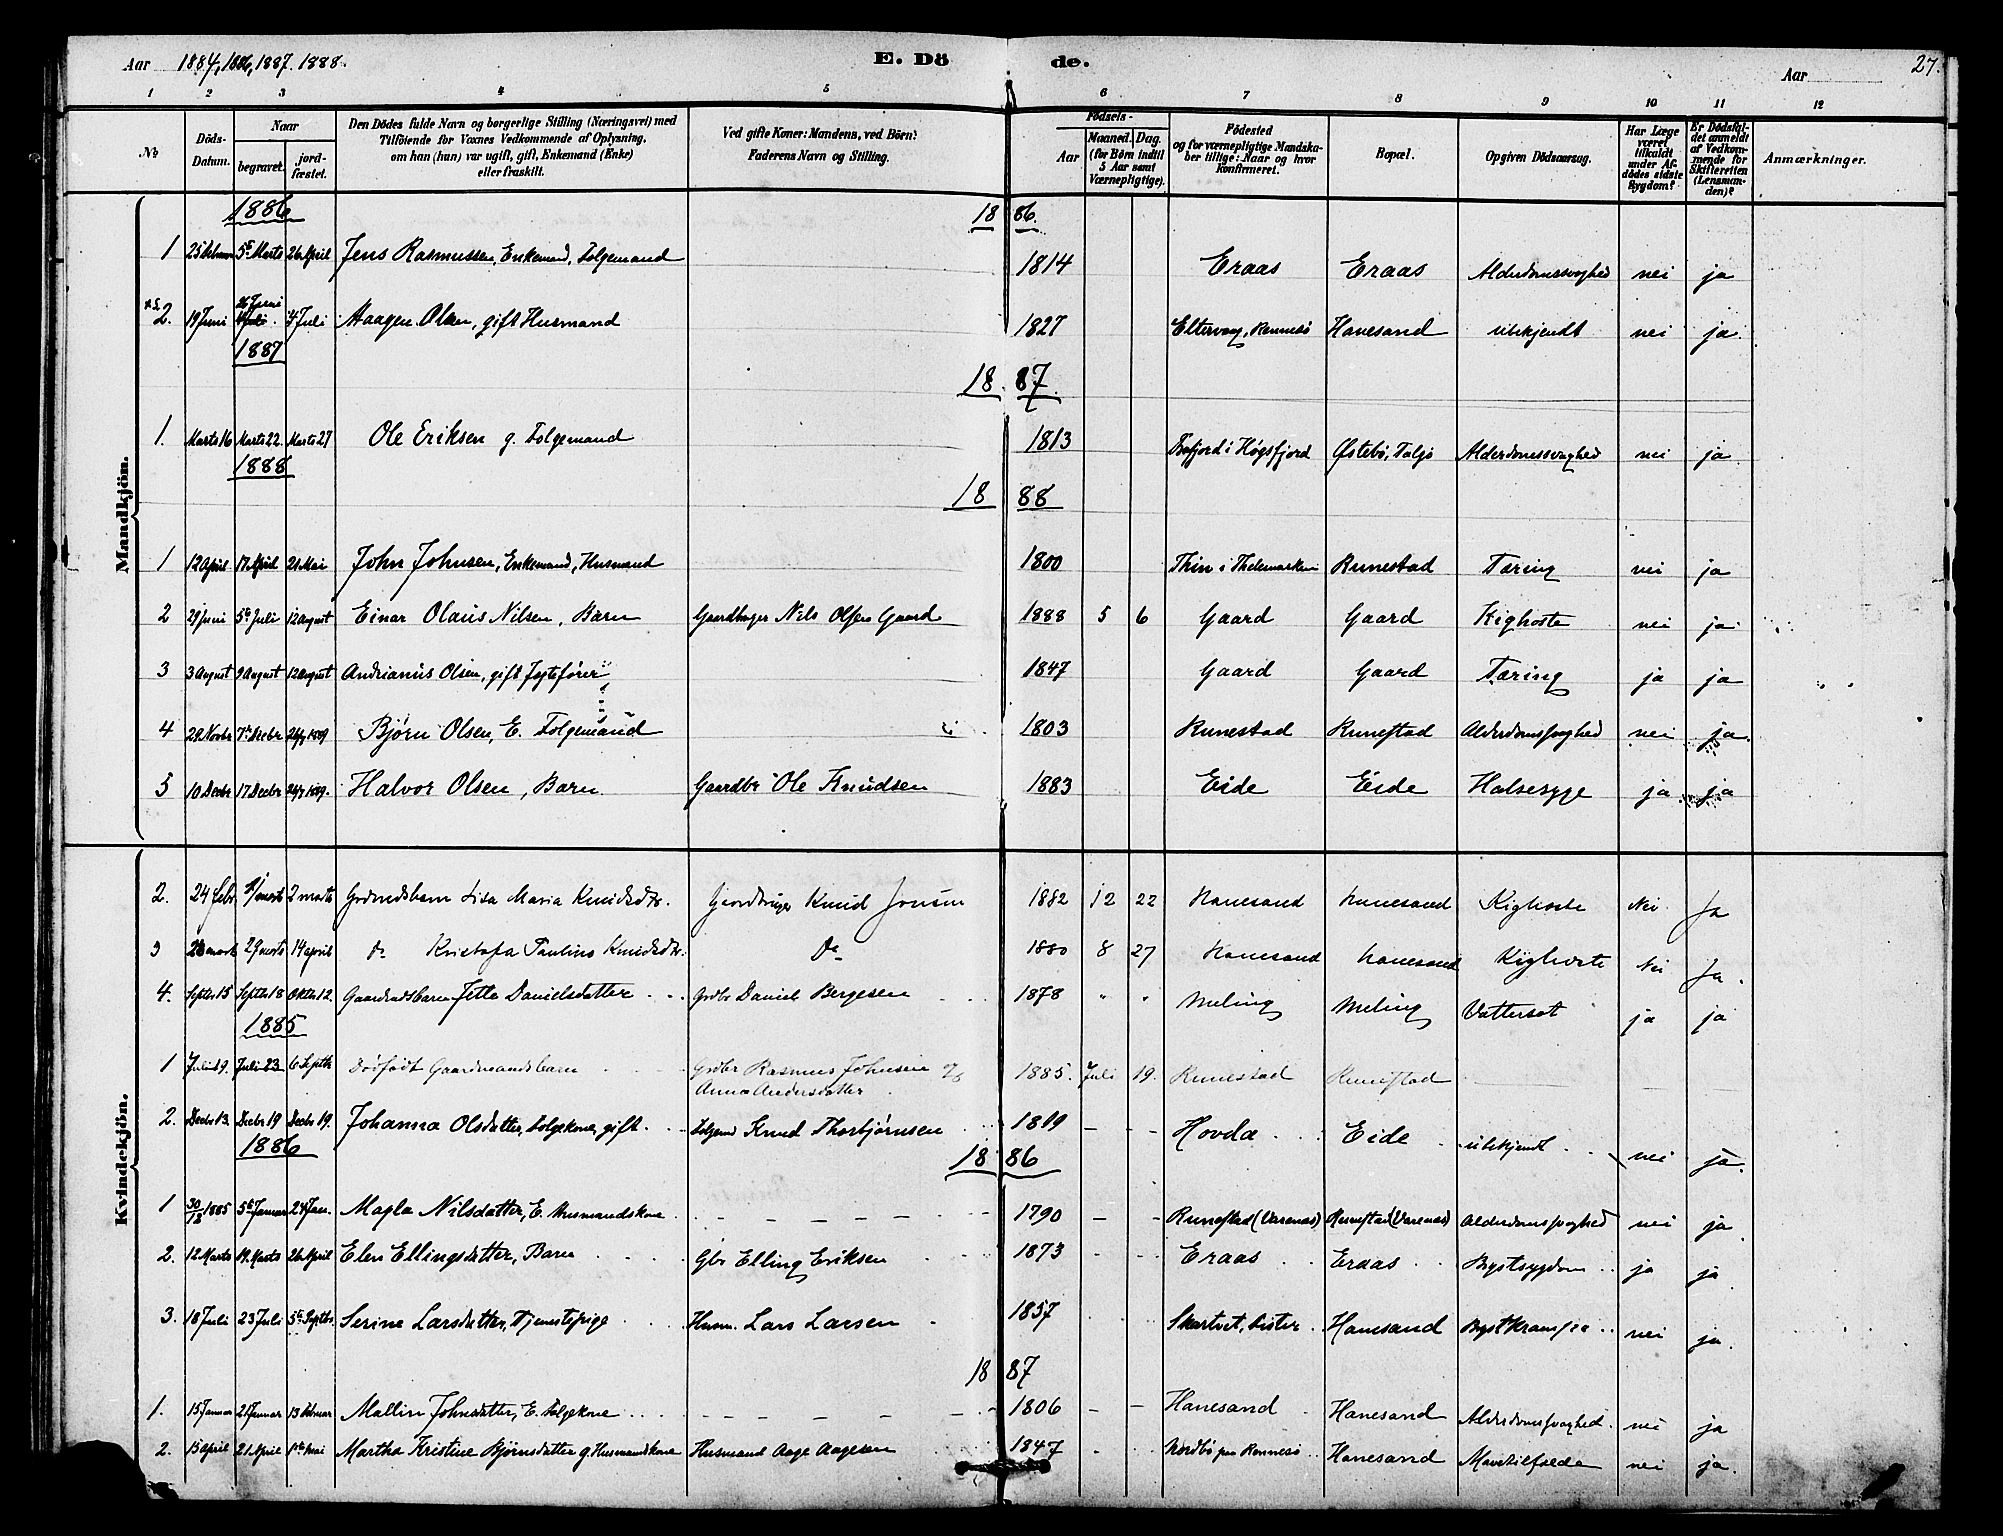 Aar 1884, 1886, 1887. 1888. E. Dö de. Aar 27.
1 2 3 4 5 6 7 8 9 10 11 12
No Döds-Datum. Naar begravet. jord-fæstet. Den Dödes fulde Navn og borgerlige Stilling (Næringsvei) med Tilföiende for Voxnes Vedkommende af Oplysning, om han (hun) var ugift, gift, Enkemand (Enke) eller fraskilt. Ved gifte Koner: Mandens, ved Börn: Faderens Navn og Stilling. Födsels- Aar Maaned. Dag. (for Börn indtil 5 Aar samt Værnepligtige). Födested og for værnepligtige Mandska-ber tillige: Naar og hvor konfirmeret. Bopæl. Opgiven Dödsaarsag. Har Læge været tilkaldt under Af-dödes sidste Sygdom? Er Dödsfal-det anmeldt af Vedkom-mende for Skifteretten (Lensman-den)? Anmærkninger.
Mandkjön.
1886 18 86.
1 25 Februar 5te Marts 26 April Jens Rasmussen, Enkemand, Folgemand 1814 Eraas Eraas Alderdomssvaghed nei ja
2. 19 Juni 26 Juni 4 Juli 4 Juli Haagen Olsen, gift Husmand 1827 Eltervaag, Rennesö Hanesand ubekjendt nei ja.
1887
18 87.
1. Marts 16 Marts 22. Marts 27 Ole Eriksen g. Folgemand 1813 i Høgsfjord Østebö, Talgö Alderdomssvaghed nei ja
1888
18 88
1 12 April 17 April 21 Mai John Johnsen, Enkemand, Husmand 1800 Thin i Thelemarken Runestad Tæring nei ja
2 29 Juni 5te Juli 12 August Einar Olaus Nilsen, Barn Gaardbruger Nils Olsen Gaard 1888 5 6 Gaard Gaard Kighoste nei ja
3 3 August 9 August 12 August Andrianus Olsen, gift Jagtefører 1847 Gaard Gaard Tæring ja ja
4 29 Novbr 7de Decbr 1889 Bjørn Olsen, E. Folgemand 1803 Runestad Runestad Alderdomssvaghed nei ja.
5 10 Decbr 17 Decbr 1889. Halvor Olsen, Barn Gaardbr Ole Knudsen 1883 Eide Eide Halsesyge ja ja
Kvindekjön.
2. 24 febr 1/marts 2 marts Grdmdsbarn Lisa Maria Knudsdtr. Gaardbruger Knud Jonsen 1882 12 22 Hanesand Hanesand Kighoste Nei Ja
3 marts 29 marts 14 april do Paulina Knudsdtr. Do 1880 8 27 Hanesand Hanesand Kighoste Nei Ja.
4. Septbr 15 Septbr 18 Oktbr 12. Gaardmdsbarn Jette Danielsdatter Grdbr Daniel Bergesen 1878 " " Meling Meling Vattersot ja ja
1885
1 Juli 19. Juli 23 6 Septbr Dødfødt Gaardmandsbarn Grdbr Rasmus Johnsen og Anna Andersdatter 1885. Juli 19. Runestad Runestad
2. Decbr 13. Decbr 19 Decbr 19. Johanna Olsdatter, Folgekone, gift Folgemd Knud Thorbjørnsen 1819 Hovda Eide ubekjendt nei ja.
1886 18 86
1 30/12 1885 5te Januar 24 Jan. Magla Nilsdatter, E. Husmandskone 1790 Runestad (Varenæs) Runestad (Varenæs) Alderdomssvaghed nei ja
2. 12 Marts 19. Marts 26 April Elen Ellingsdatter, Barn Gbr Elling Eriksen 1873 Eraas Eraas Brystsygdom ja ja
3. 18 Juli 23 Juli 5te Septbr Serine Larsdatter, Tjenestepige Husm. Lars Larsen 1857 Skartvet, Lister Hanesand nei ja.
18 87
1. 15 Januar 21 Januar 13 Februar Mallin Johnsdatter, E. Folgekone 1806 Hanesand Hanesand Alderdomssvaghed nei ja
2. 15 April 21 April 1ste Mai Martha Kristine Bjørnsdatter g. Husmandskone Husmand Aage Aagesen 1847 Nordbö paa Rennesö Hanesand nei ja.